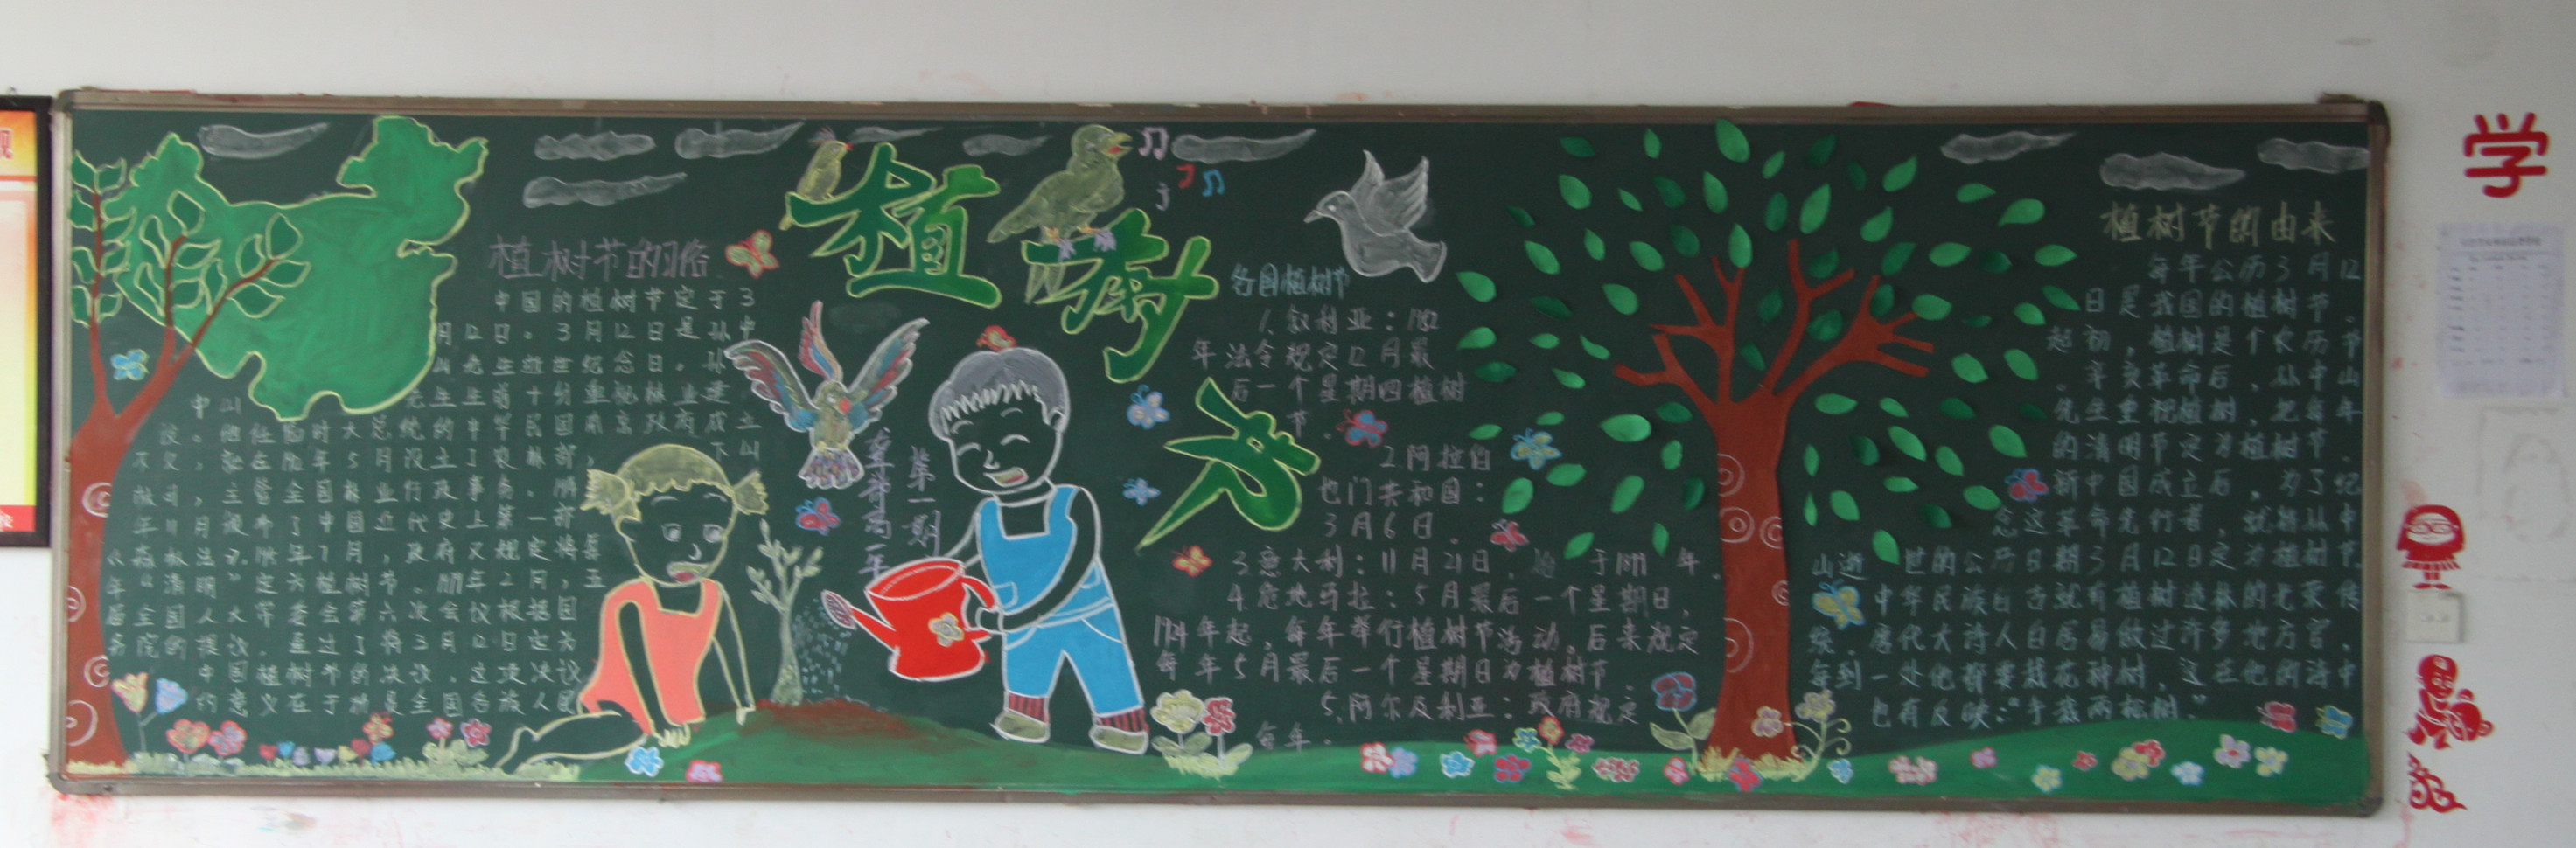 植树节
植树节的习俗
中国的植树节定于3
月12日。3月12日是孙中
山先生逝世纪念日。孙
先生生前十分重视林业建
设。他任临时大总统的中华民国南京政府成立
不久,就在 年5月设立了农林部,下
山林司,主管全国林业行政事务,
年11月颁布了中国近代史上第一部
《森林法》。 年7月,政府又规定将
年“清明”定为植树节。 年2月,五
届全国人大常委会第六次会议根据国
务院的提议,通过了将3月12日定为
中国植树节的决议,这项决议
的意义在于 是全国各族人民
第一期
各国植树节
1、叙利亚:
年法令规定12月最
后一个星期四植树
节.
2阿拉伯
也门共和国:
3月6日.
3.意大利:11月21日, 于 年.
4. 地马拉:5月最后一个星期日,
年起,每年举行植树节活动。后来规定
每年5月最后一个星期日为植树节.
5.阿尔及利亚:政府规定
每年.
植树节的由来
每年公历3月12
日是我国的植树节.
起初,植树是个农历节
。辛亥革命后,孙中山
先生重视植树,把每年
的清明节定为植树节.
新中国成立后,为了纪
念这革命先行者,就将孙中
山逝世的公历日期3月12日定为植树节.
中华民族自古就有植树造林的光荣传
统.唐代大诗人白居易做过许多地方官,
每到一处他都要栽花种树,这在他的诗中
也有反映:“手栽两松树.”
学